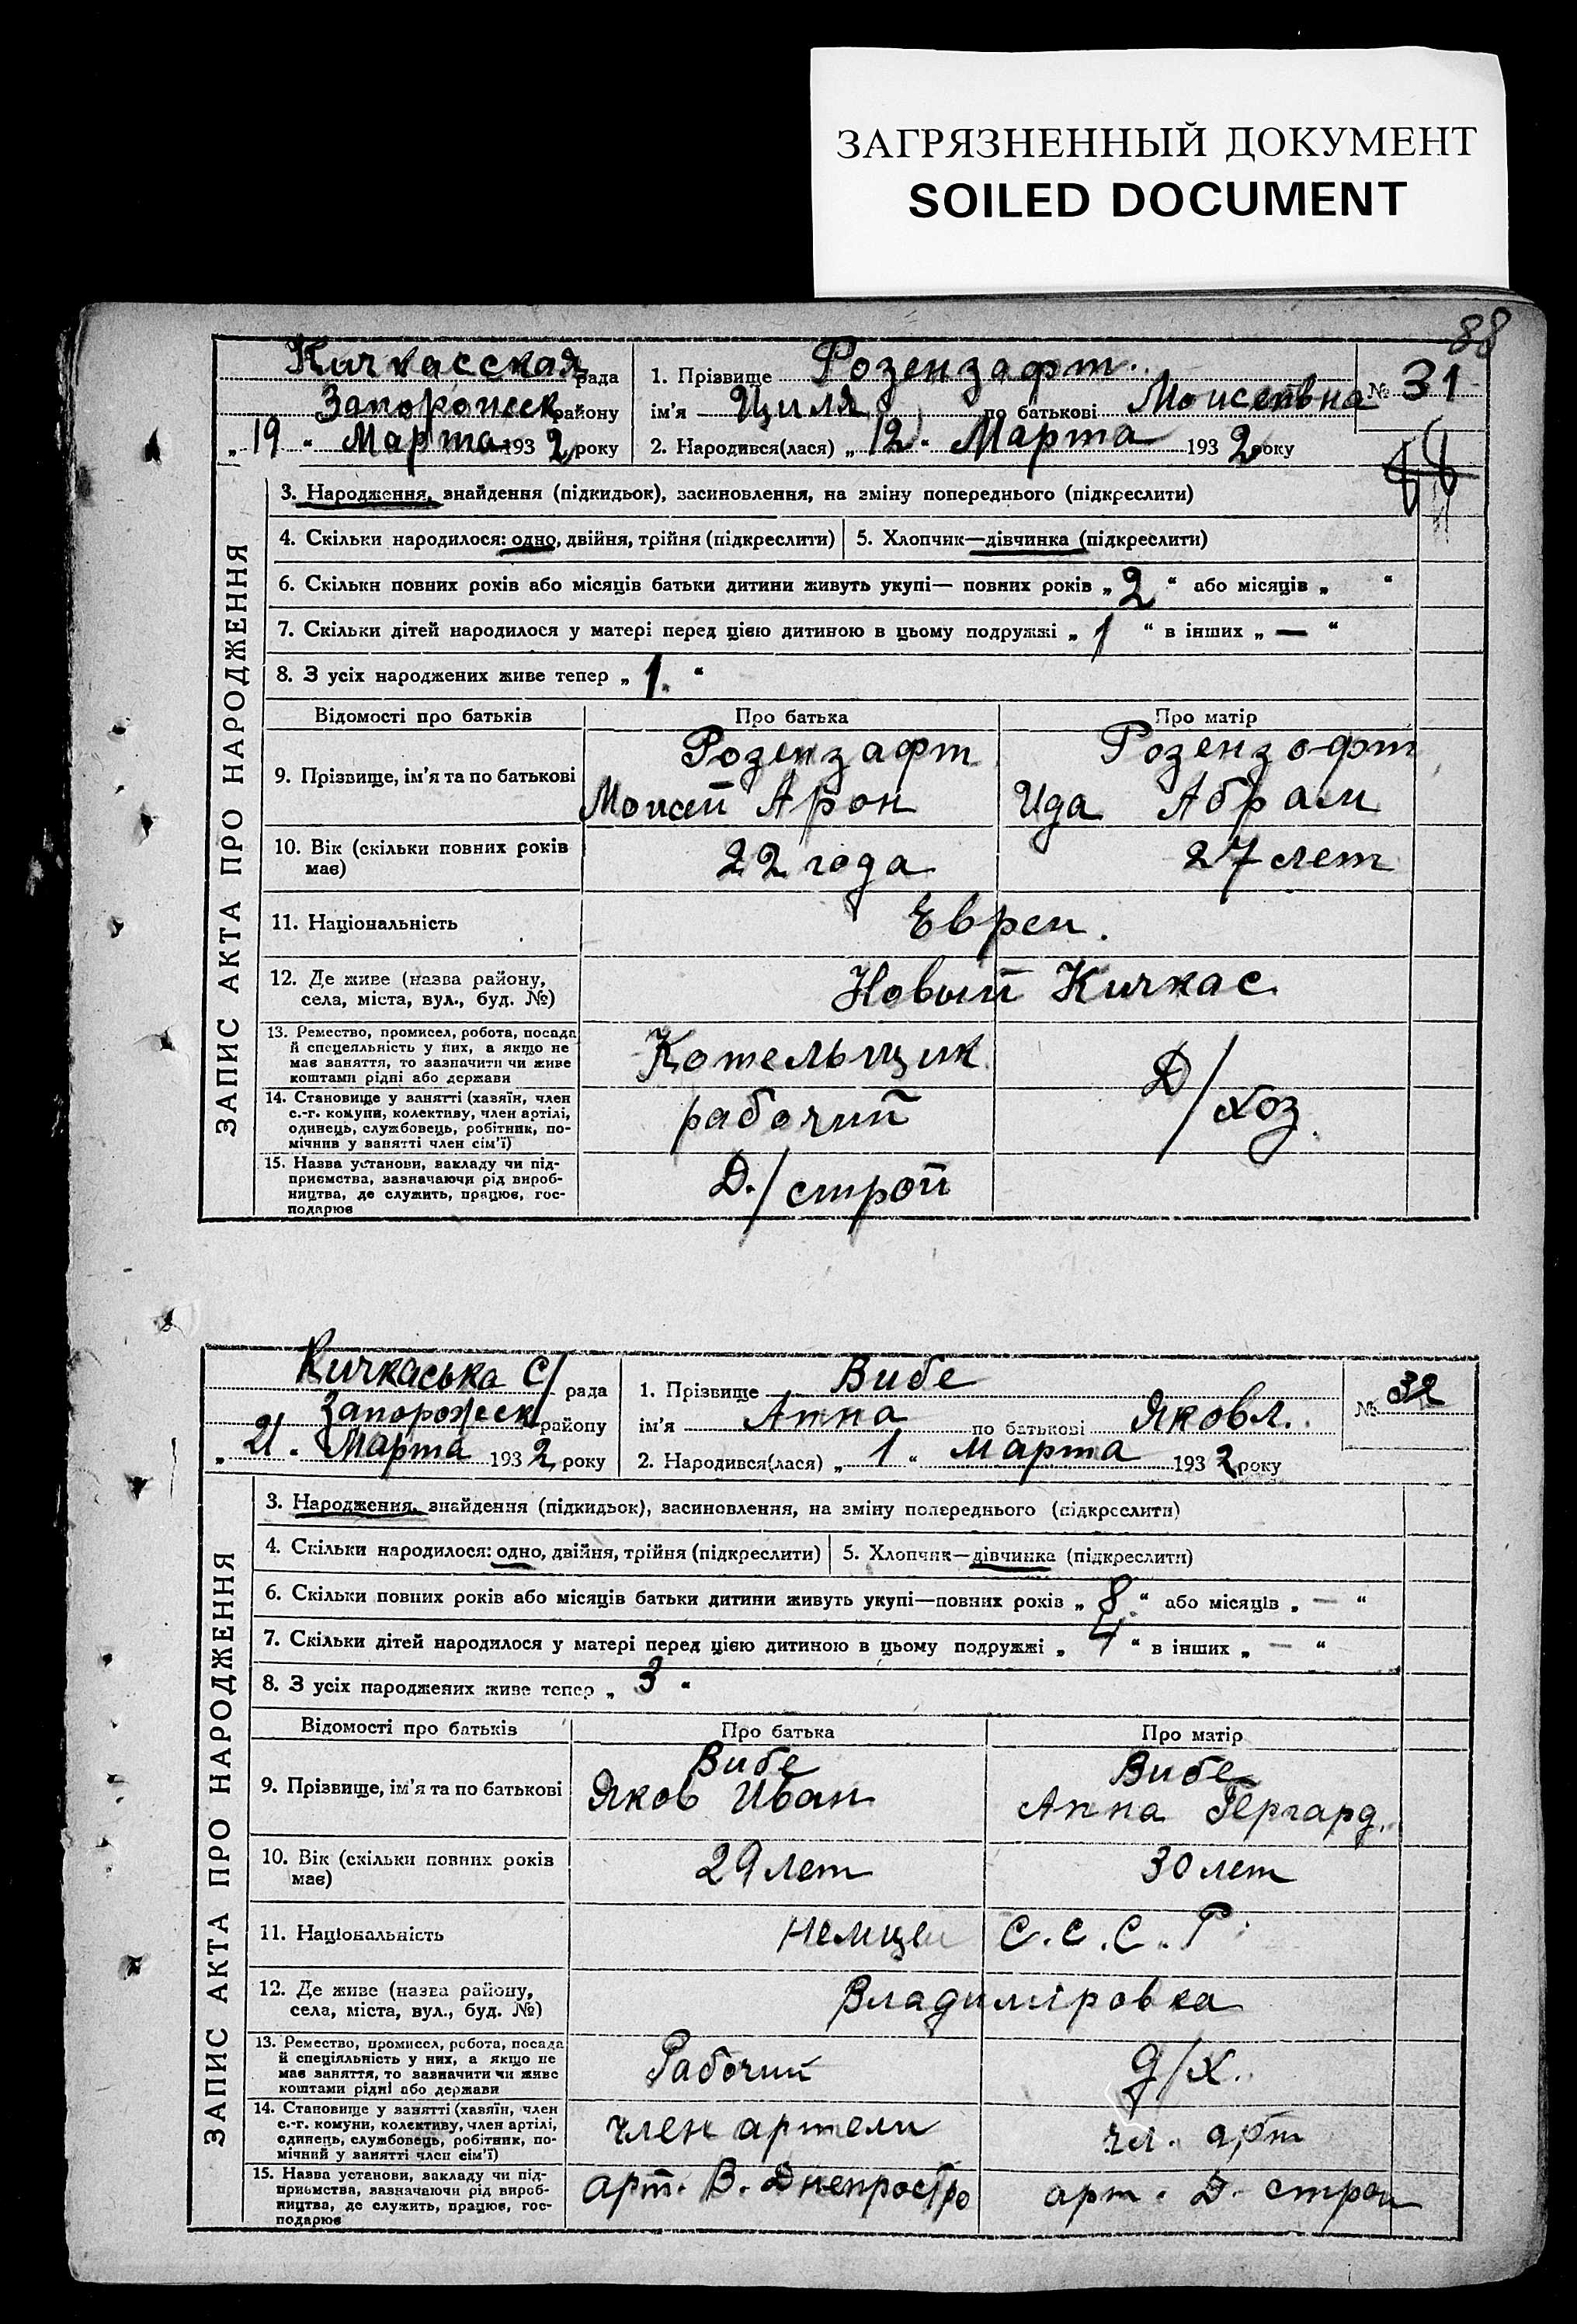 ЗАГРЯЗНЕННЫЙ ДОКУМЕНТ
SOILED DOCUMENT
88
ЗАПИС АКТА ПРО НАРОДЖЕННЯ
Кичкасская рада
Запорожск району
„19“ Марта 1932 року
1. Прізвище Розензафт
ім'я Циля по батькові Моисеевна
2. Народився(лася) „12“ Марта 1932 року
№ 31
3. Народження, знайдення (підкидьок), засиновлення, на зміну попереднього (підкреслити)
4. Скільки народилося: одно, двійня, трійня (підкреслити) 5. Хлопчик—дівчинка (підкреслити)
6. Скільки повних років або місяців батьки дитини живуть укупі— повних років „2“ або місяців „ “
7. Скільки дітей народилося у матері перед цією дитиною в цьому подружжі „1“ в інших „—“
8. З усіх народжених живе тепер „1.“
Відомості про батьків Про батька Про матір
9. Прізвище, ім'я та по батькові
Розензафт
Моисей Арон
Розензафт
Ида Абрам
10. Вік (скільки повних років
має)
22 года
27 лет
11. Національність
Евреи.
12. Де живе (назва району,
села, міста, вул., буд. №)
Новый Кичкас
13. Ремество, промисел, робота, посада
й спецеяльність у них, а якщо не
має заняття, то зазначити чи живе
коштами рідні або держави
Котельщик
Д/хоз.
14. Становище у занятті (хазяїн, член
с.-г. комуни, колективу, член артілі,
одинець, службовець, робітник, по-
мічнив у занятті член сім'ї)
рабочий
15. Назва установи, закладу чи під-
приємства, зазначаючи рід вироб-
ництва, де служить, працює, гос-
подарює
Д./строй
ЗАПИС АКТА ПРО НАРОДЖЕННЯ
Кичкаська С/ рада
Запорожск району
„21“ Марта 1932 року
1. Прізвище Вибе
ім'я Анна по батькові Яковл.
2. Народився(лася) „1“ марта 1932 року
№ 32
3. Народження, знайдення (підкидьок), засиновлення, на зміну попереднього (підкреслити)
4. Скільки народилося: одно, двійня, трійня (підкреслити) 5. Хлопчик—дівчинка (підкреслити)
6. Скільки повних років або місяців батьки дитини живуть укупі—повних років „8“ або місяців „—“
7. Скільки дітей народилося у матері перед цією дитиною в цьому подружжі „4“ в інших „—“
8. З усіх народжених живе тепер „3“
Відомості про батьків Про батька Про матір
9. Прізвище, ім'я та по батькові
Вибе
Яков Иван
Вибе
Анна Гергард.
10. Вік (скільки повних років
має)
29 лет
30 лет
11. Національність
немцы С.С.С.Р.
12. Де живе (назва району,
села, міста, вул., буд. №)
Владиміровка
13. Ремество, промисел, робота, посада
й спеціяльність у них, а якщо не
має заняття, то зазначити чи живе
коштами рідні або держави
Рабочий
д/х.
14. Становище у занятті (хазяїн, член
с.-г. комуни, колективу, член артілі,
одинець, службовець, робітник, по-
мічний у занятті член сім'ї)
член артели
чл. арт
15. Назва установи, закладу чи під-
приємства, зазначаючи рід вироб-
ництва, де служить, працює, гос-
подарює
арт. В. Днепростро
арт. Д. строи